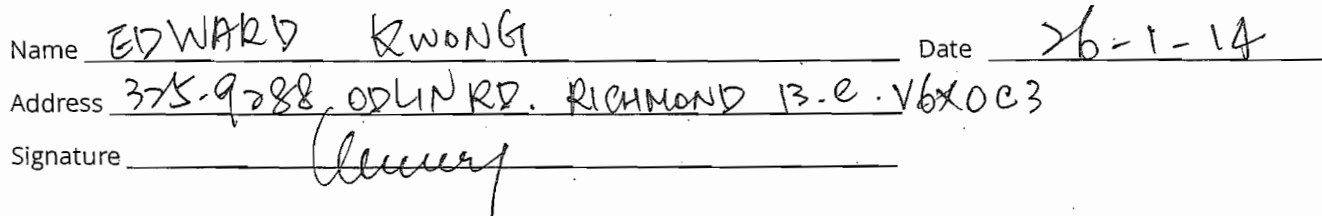 Name EDWARD KWONG Date 26-1-14
Address 325-9288, ODLIN RD. RICHMOND B.C. V6X0C3
Signature